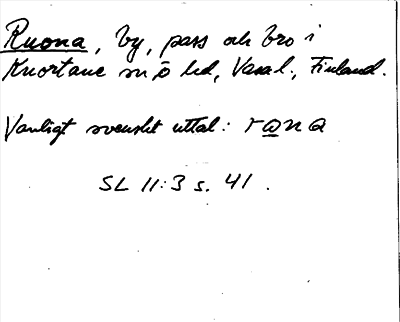 Ruona, by, pass och bro i
Kuortane sn, ö hd, Vasa l., Finland.
Vanligt svenskt uttal: rωna
SL 11:3 s. 41.